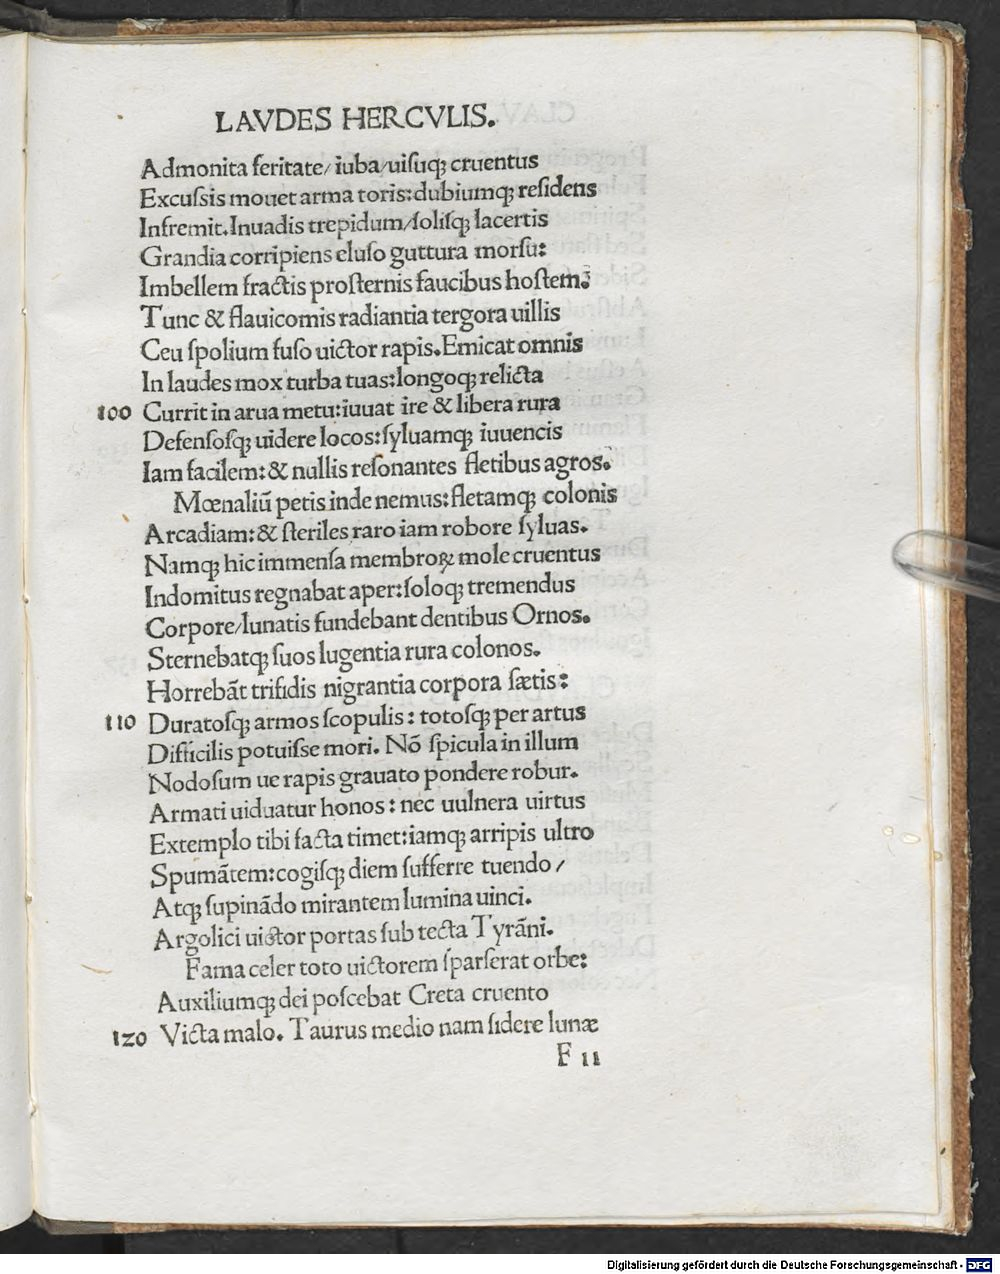 LAVDES HERCVLIS.
Admonita feritate/ iuba/uiſuq; cruentus
Excuſsis mouet arma toris:dubiumq; reſidens
Infremit.Inuadis trepidum/ſoliſq; lacertis
Grandia corripiens eluſo guttura morſu:
Imbellem fractis proſternis faucibus hoſtem.
Tunc & flauicomis radiantia tergora uillis
Ceu ſpolium fuſo uictor rapis.Emicat omnis
In laudes mox turba tuas:longoq; relicta
100 Currit in arua metu:iuuat ire & libera rura
Defenſoſq; uidere locos:ſyluamq; iuuencis
Iam facilem:& nullis reſonantes fletibus agros.
Mœnaliũ petis inde nemus:fletamq; colonis
Arcadiam:& ſteriles raro iam robore ſyluas.
Namq; hic immenſa membroꝝ mole cruentus
Indomitus regnabat aper:ſoloq; tremendus
Corpore/lunatis fundebant dentibus Ornos.
Sternebatq; ſuos lugentia rura colonos.
Horrebãt trifidis nigrantia corpora ſætis:
110 Duratoſq; armos ſcopulis: totoſq; per artus
Difficilis potuiſse mori. Nõ ſpicula in illum
Nodoſum ue rapis grauato pondere robur.
Armati uiduatur honos: nec uulnera uirtus
Extemplo tibi facta timet:iamq; arripis ultro
Spumãtem:cogiſq; diem ſufferre tuendo/
Atq; ſupinãdo mirantem lumina uinci.
Argolici uictor portas ſub tecta Tyrãni.
Fama celer toto uictorem ſparſerat orbe:
Auxiliumq; dei poſcebat Creta cruento
120 Victa malo. Taurus medio nam ſidere lunæ
F ii
Digitalisierung gefördert durch die Deutsche Forschungsgemeinschaft - DFG